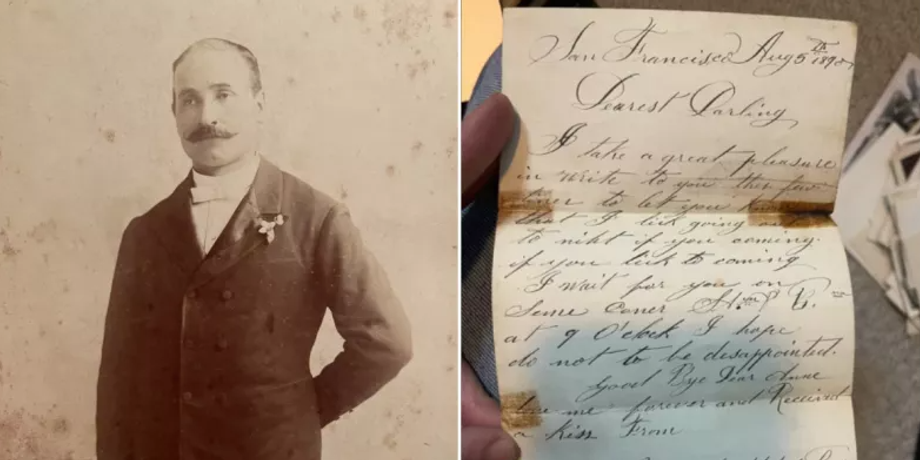 San Francisco Aug 5th
Dearest Darling
I take a great pleasure
in write to you this few
liner to let you
that I lick going
to niht if you coming.
if you lick to coming
I wait for you on
Same Coner B.
at 9 O'clock I hope
do not to be disappointed.
Good Bye Dear Anne
love me forever and Received
a Kiss From